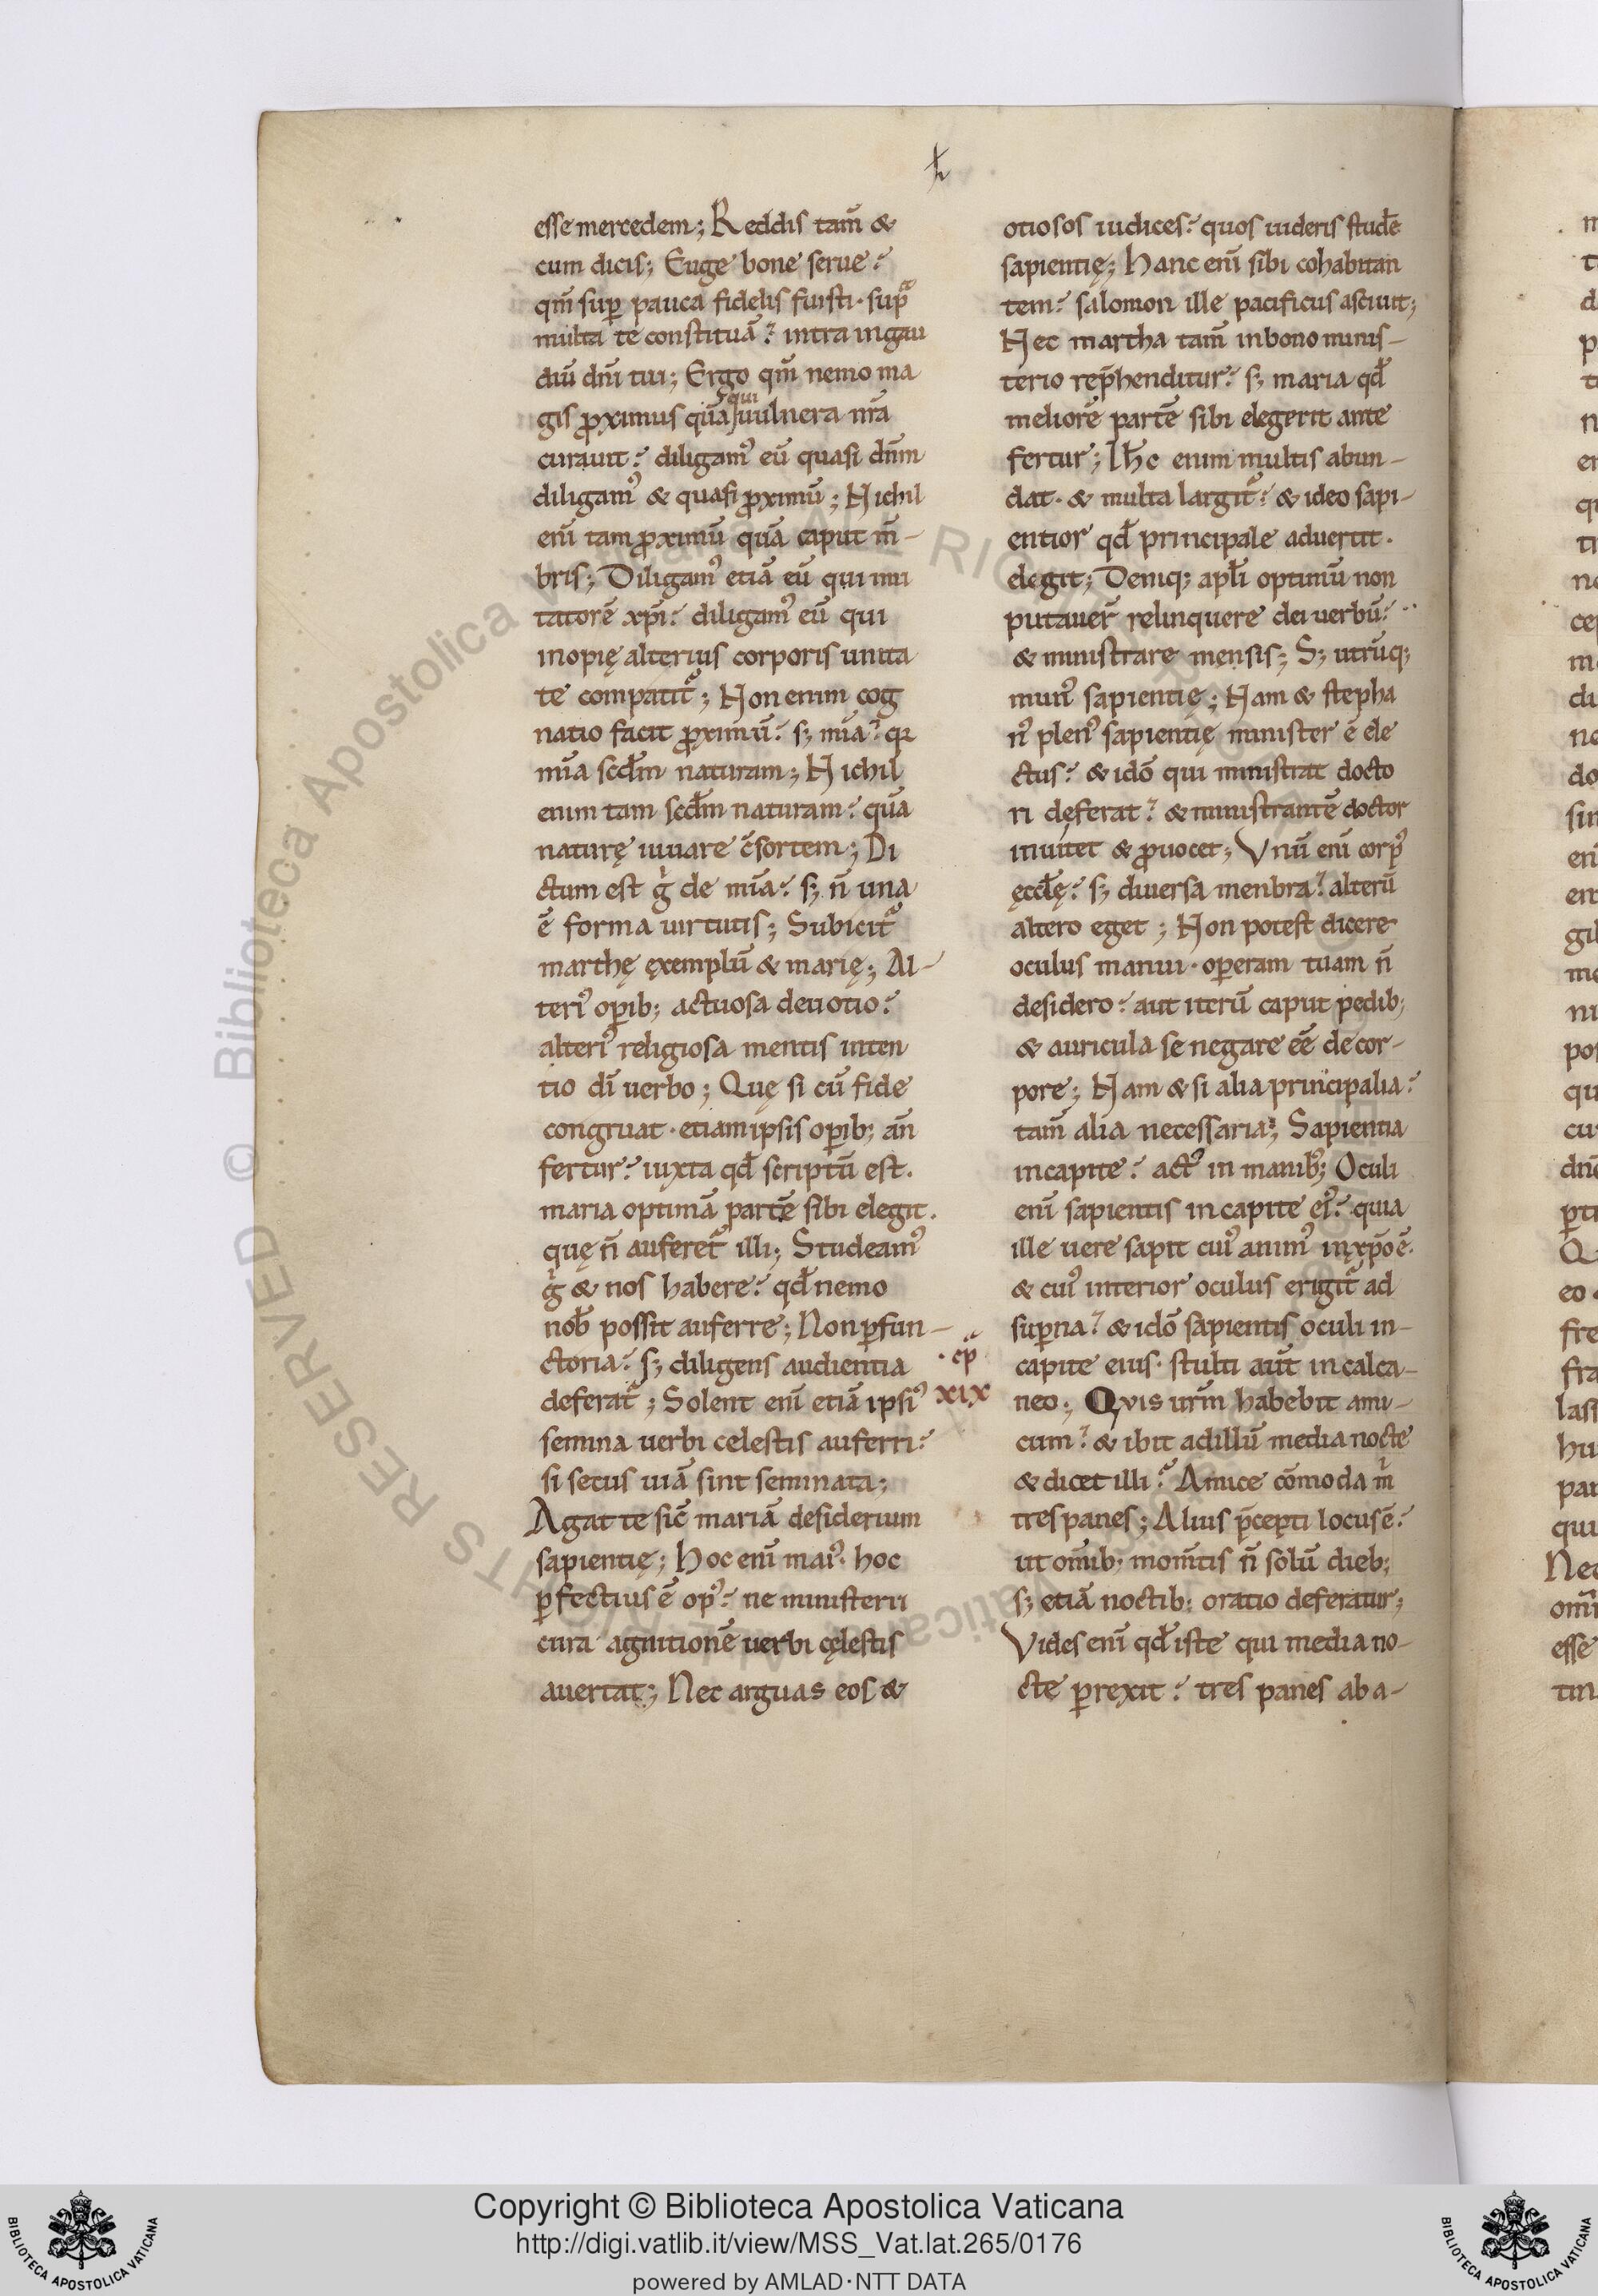 esse mercedem; Reddis tam̄ &
cum dicis; Euge bone serue?
qm̄ sup̱ pauca fidelis fuisti · sup̃
multa te constituā? intra ingau
diū dn̄i tui; Ergo qm̄ nemo ma
gis ꝓximus quā qui uulnera nr̄a
curauit? diligam᷒ eū quasi dn̄m
diligam᷒ & quasi ꝓximū; Nichil
eni̅ tam ꝓximū quā caput m̄-
bris; Diligam᷒ etiā eū qui imi
tatorē xp̄i? diligam᷒ eū qui
inopię alterius corporis unita
te compatit᷑; Non enim cog
natio facit ꝓximū? s; mia̅? qꝛ
mia̅ scdm̄ naturam; Nichil
enim tam scdm̄ naturam? quā
naturę iuuare c̄sortem; Di
ctum est g̊ de mia̅? s; n̄ una
ē forma uirtutis; Subicit᷑
marthę ęxemplū & marię; Al-
teri᷒ oꝑib; actuosa deuotio?
alteri᷒ religiosa mentis inten
tio di̅ uerbo; Quę si cū fide
congruat · etiam ipsis oꝑib; an̄
fertur? iuxta qd̄ scriptū est.
maria optimā partē sibi elegit.
quę n̄ auferet᷑ illi; Studeam᷒
g̊ & nos habere? qd̄ nemo
nob̄ possit auferre; Non ꝑfun-
ctoria? s; diligens audientia
deferat᷑; Solent eni̅ etiā ipsi᷒
semina uerbi celestis auferri?
si secus uiā sint seminata;
Agat te sic̄ mariā desiderium
sapientię; Hoc eni̅ mai᷒ · hoc
ꝑfectius ē op᷒? ne ministerii
cura agnitionē uerbi cęlestis
auertat; Nec arguas eos &
otiosos iudices? quos uideris studē
sapientię; Hanc eni̅ sibi cohabitan
tem? salomon ille pacificus asciuit;
Nec martha tam̄ in bono minis-
terio rep̄henditur? s; maria qd̄
meliorē partē sibi elegerit ante
fertur; Ih̄c enim multis abun-
dat · & multa largit᷑? & ideo sapi-
entior qd̄ principale aduertit.
elegit; Deniq; apl̄i optimū non
putauer̄ relinquere dei uerbū?
& ministrare mensis; S; utrūq;
mun᷒ sapientię; Nam & stepha
n᷒ plen᷒ sapientię minister ē ele
ctus? & idō qui ministrat docto
ri deferat? & ministrantē doctor
inuitet & ꝓuocet; Vnū eni̅ corp᷒
ęccl̄ę? s; diuersa menbra? alterū
altero eget; Non potest dicere
oculus manui · oꝑeram tuam n̄
desidero? aut iterū caput pedib;
& auricula se negare ee̅ de cor-
pore; Nam & si alia principalia?
tam̄ alia necessaria; Sapientia
in capite? act᷒ in manib᷒; Oculi
eni̅ sapientis in capite ei᷒? quia
ille uere sapit cui᷒ anim᷒ in xp̄o ē.
& cui᷒ interior oculus erigit᷑ ad
suꝑna? & idō sapientis oculi in-
capite eius · stulti aut̄ in calca-
· cp̃
xix
neo; Qvis ur̄m habebit ami-
cum? & ibit ad illū media nocte
& dicet illi? Amice cōmoda m̊
tres panes; Alius p̄cepti locus ē?
ut omib; mom̄tis n̄ solū dieb;
s; etiā noctib; oratio deferatur;
Vides eni̅ qd̄ iste qui media no-
cte ꝑrexit? tres panes ab a-
© Biblioteca Apostolica Vaticana ALL RIGHTS RESERVED
BIBLIOTECA APOSTOLICA VATICANA
Copyright © Biblioteca Apostolica Vaticana
http://digi.vatlib.it/view/MSS_Vat.lat.265/0176
powered by AMLAD·NTT DATA
BIBLIOTECA APOSTOLICA VATICANA